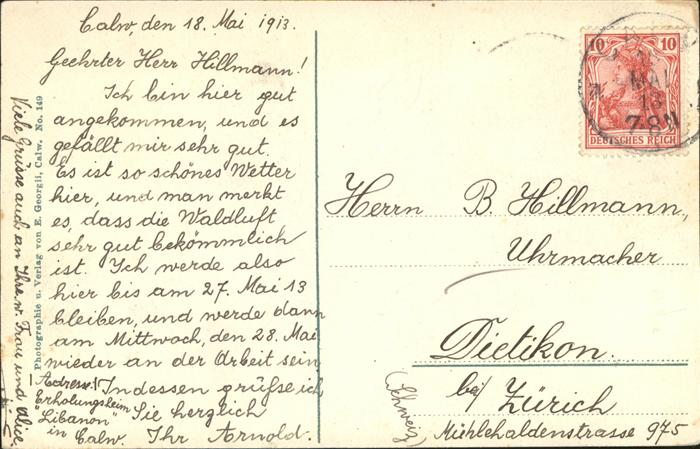 Calw, den 18. Mai 1913.
Geehrter Herr Hillmann!
Ich bin hier gut
angekommen, und es
gefällt mir sehr gut.
Es ist so schönes Wetter
hier, und man merkt
es, dass die Waldluft
sehr gut bekömmlich
ist. Ich werde also
hier bis am 27. Mai 13
bleiben, und werde dann
am Mittwoch, den 28. Mai
wieder an der Arbeit sein
Indessen grüsse ich
Sie herzlich
Ihr Arnold.
Adresse:
Erholungsheim
"Libanon"
in Calw.
Viele Grüsse auch an Ihre w. Frau und Alice
Photographie u. Verlag von E. Georgii, Calw. No. 149
10 10
DEUTSCHES REICH
MAI
13
7-8 N
Herrn B. Hillmann,
Uhrmacher
Dietikon.
bei Zürich
(Schweiz)
Mühlehaldenstrasse 975